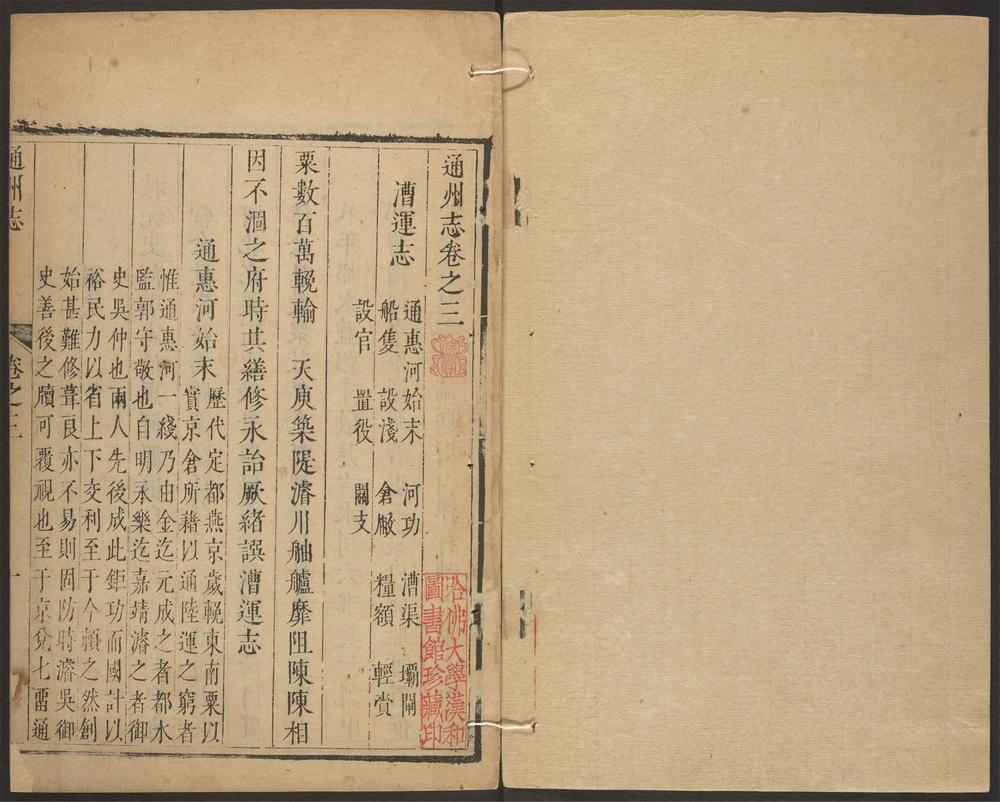 通州志卷之三
漕運志
通惠河始末 河功 漕渠 壩閘
船隻 設淺 倉廒 糧額 輕賫
設官 置役 關支
粟數百萬輓輸 天庾築隄濬川舳艫靡阻陳陳相
因不涸之府時其繕修永詒厥緒譔漕運志
通惠河始末
歷代定都燕京歲輓東南粟以
實京倉所藉以通陸運之窮者
惟通惠河一綫乃由金迄元成之者都水
監郭守敬也自明永樂迄嘉靖濬之者御
史吳仲也兩人先後成此鉅功而國計以
裕民力以省上下交利至于今賴之然創
始甚難修葺良亦不易則固防時濬吳御
史善後之牘可覆視也至于京兌七畱通
通州志
卷之三
一
哈佛大學漢和
圖書館珍藏印